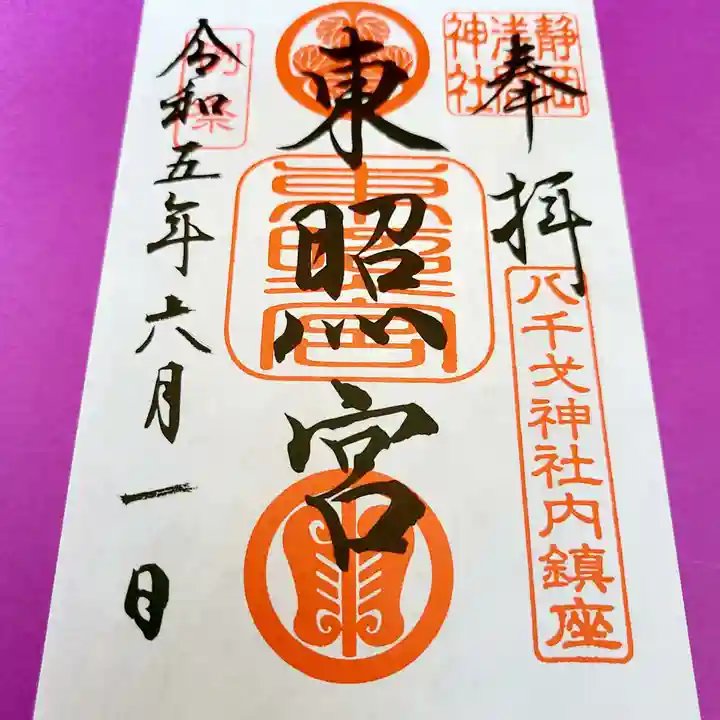 奉拝
静岡
浅間
神社
八千戈神社内鎮座
東照宮
東照宮
例祭
令和五年六月一日